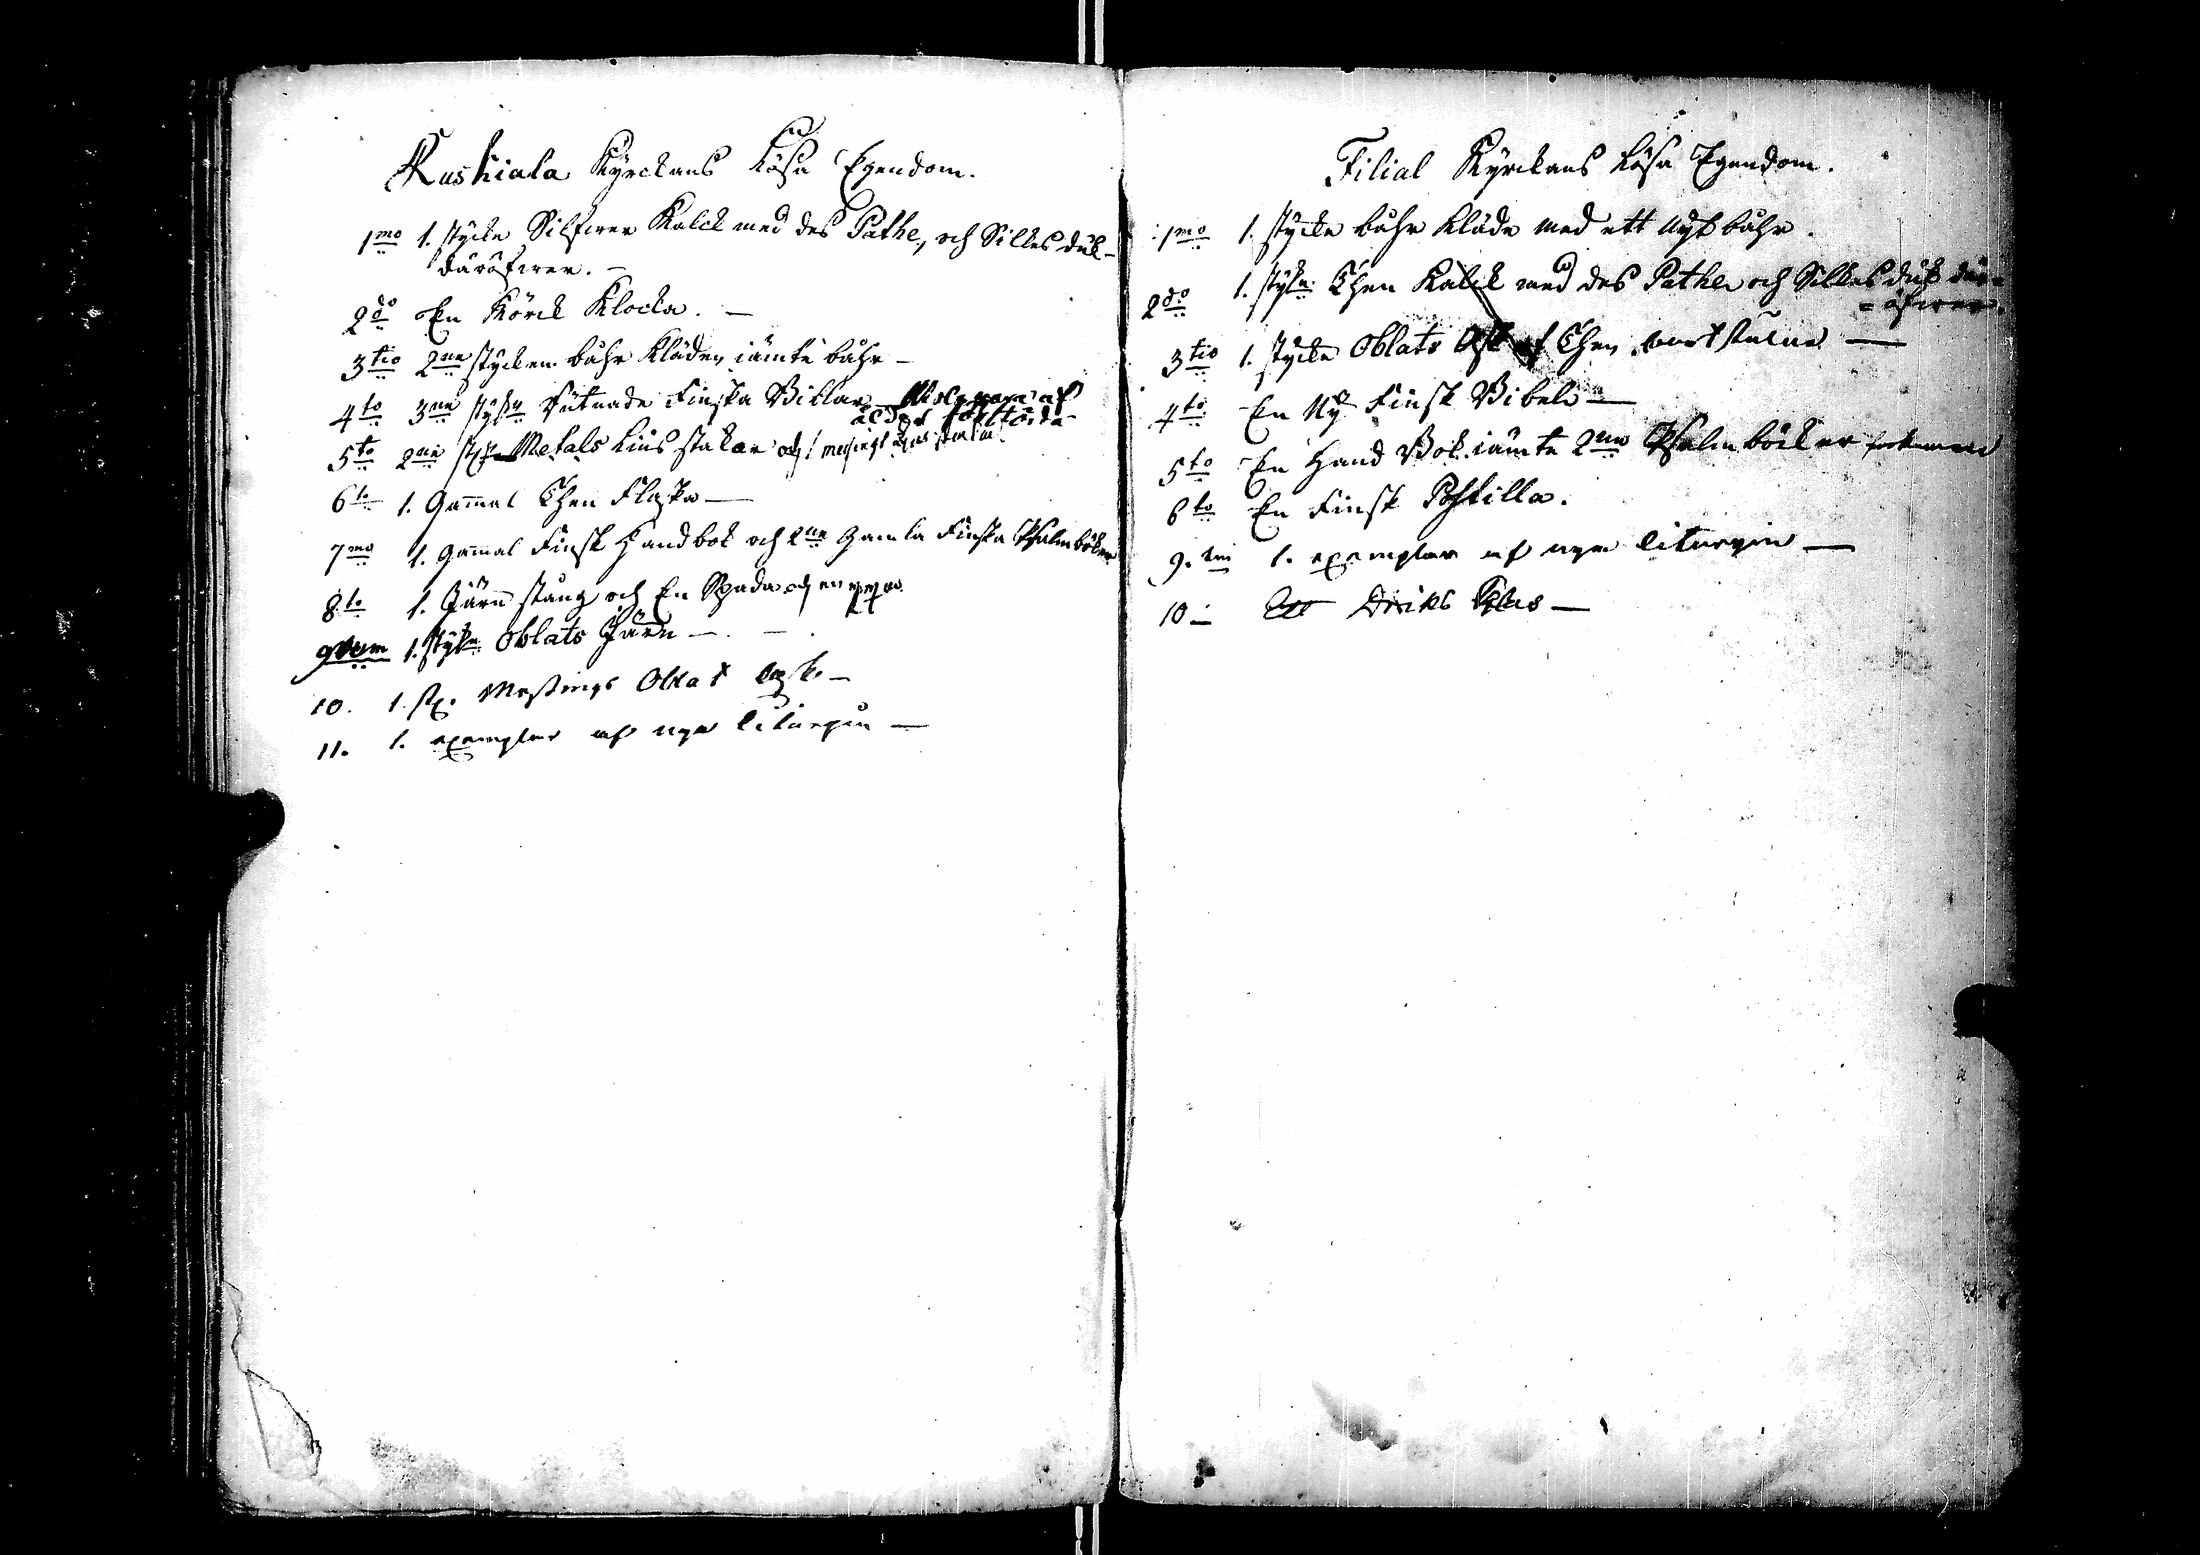 Ruskiala Kyrckans Lösa Egendom.
1mo 1. stycke Silfwer Kalck med des Pathe, och Silkes duk
däröfwer. –
2do En Körck Klocka. –
3tio 2ne stycken båhr Kläden jämte båhr –
4to 3ne stycken Finska Biblar
af ålder förstörda –
5to 2ne st. Metals Lius stakar och 1 messings lius stake
6to 1. Gammal Then Flaska –
7mo 1. gammal Finsk Handbok och 2ne Gamla Finska Psalmböcker
8to 1. Järn stång och En Spada och en
1. stycke Oblats Järn –
10. 1 st. Messings Oblat ask –
11. 1. exemplar af nya Liturgien –
Filial Kyrckans Lösa Egendom.
1mo 1. stycke båhr Kläde med ett nytt båhr.
2do 1. stycke Then Kalck med des Pathe och Silkes duk där=
=öfwer.
3tio 1. stycke Oblats Ask af Then bortstulne –
4to En Ny Finsk Bibel –
5to En Hand Bok jämte 2ne Psalmböcker
6to En Finsk Postilla.
9. 1. exemplar af nya Liturgien –
10 – Ett Driks Glas –